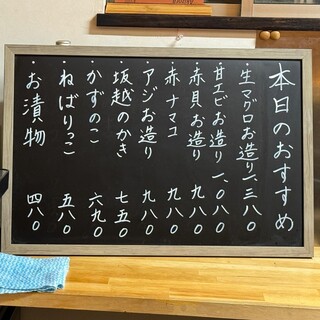 本日のおすすめ
・生マグロお造り 一、三八〇
・甘エビお造り 一、〇八〇
・赤貝お造り 九八〇
・赤ナマコ 九八〇
・アジお造り 九八〇
・坂越のかき 七五〇
・かずのこ 六九〇
・ねばりっこ 五八〇
・お漬物 四八〇